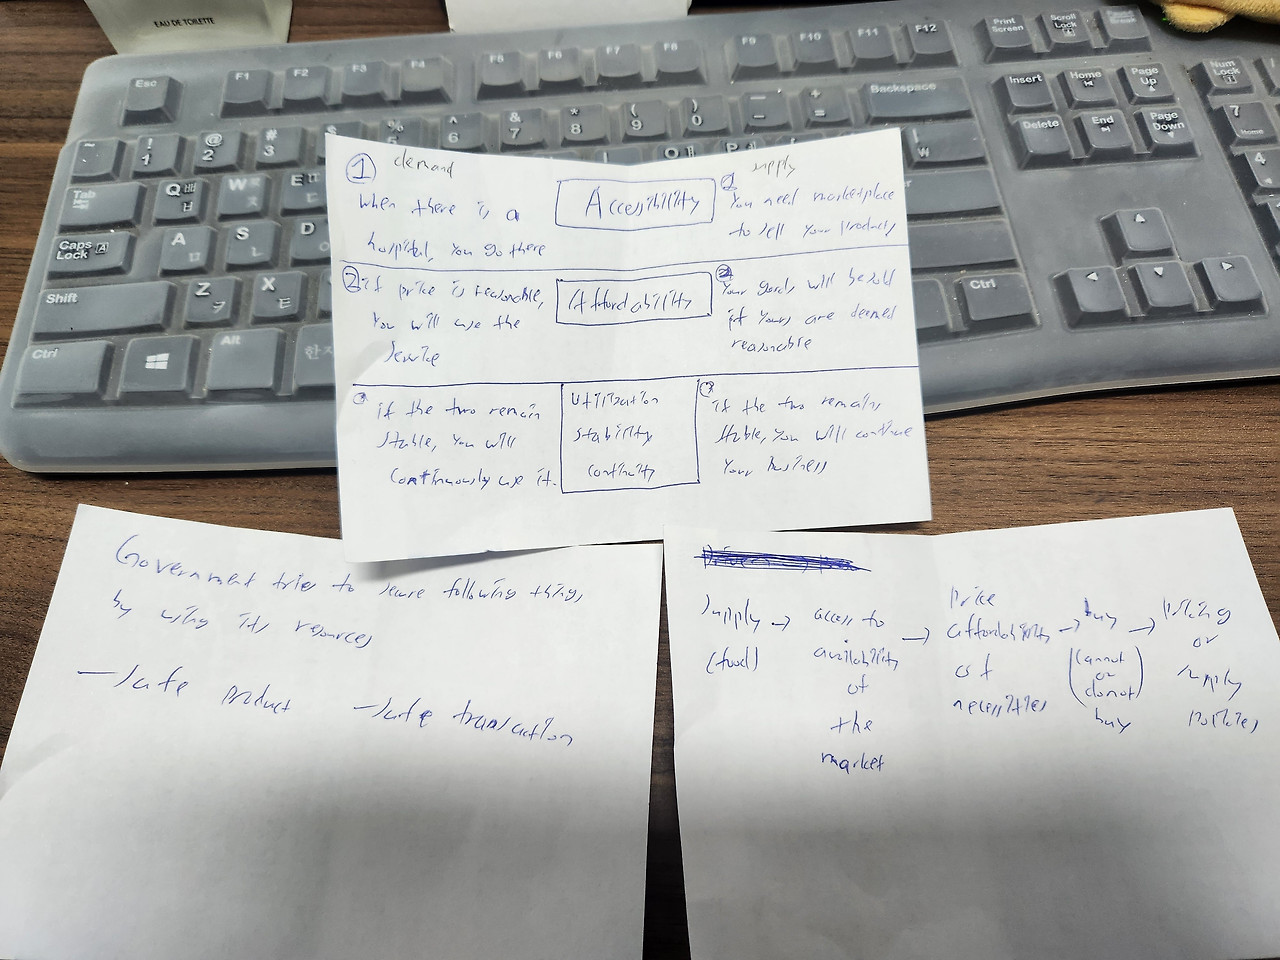 EAU DE TOILETTE
Esc F1 F2 F3 F4 F5 F6 F7 F8 F9 F10 F11 F12 Print Screen Scroll Lock
~ ! 1 @ 2 # 3 $ % 5 ^ 6 & 7 * 8 ( 9 ) 0 — - + = Backspace Insert Home Page Up Num Lock
Tab Q ㅂ W E Delete End Page Down 7 Home
Caps Lock A A S D 4
Shift Z X Ctrl
Ctrl Alt 한자
① demand
when there is a
hospital, you go there
Accessibility
① supply
You need marketplace
to sell your products
② if price is reasonable,
you will use the
service
Affordability
② Your goods will be sold
if yours are deemed
reasonable
③ if the two remain
stable, you will
continuously use it.
Utilization
stability
continuity
③ if the two remains
stable, you will continue
your business
Government tries to secure following things
by using its resources
— safe product — safe transaction
supply → access to → price → buy → pricing
(food) availability affordability (cannot or
of of or supply
the necessities donot) policies
market buy